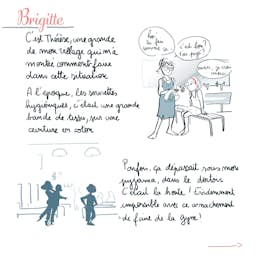 Brigitte
C'est Thérèse, une grande
de mon village qui m'a
montré comment faire
dans cette situation.
A l'époque, les serviettes
hygiéniques, c'était une grande
bande de tissu, sur une
ceinture en coton
Parfois, ça dépassait sous mon
pyjama, dans le dortoir
C'était la honte ! Evidemment
impossible avec ce arnachement
de faire de la gym !